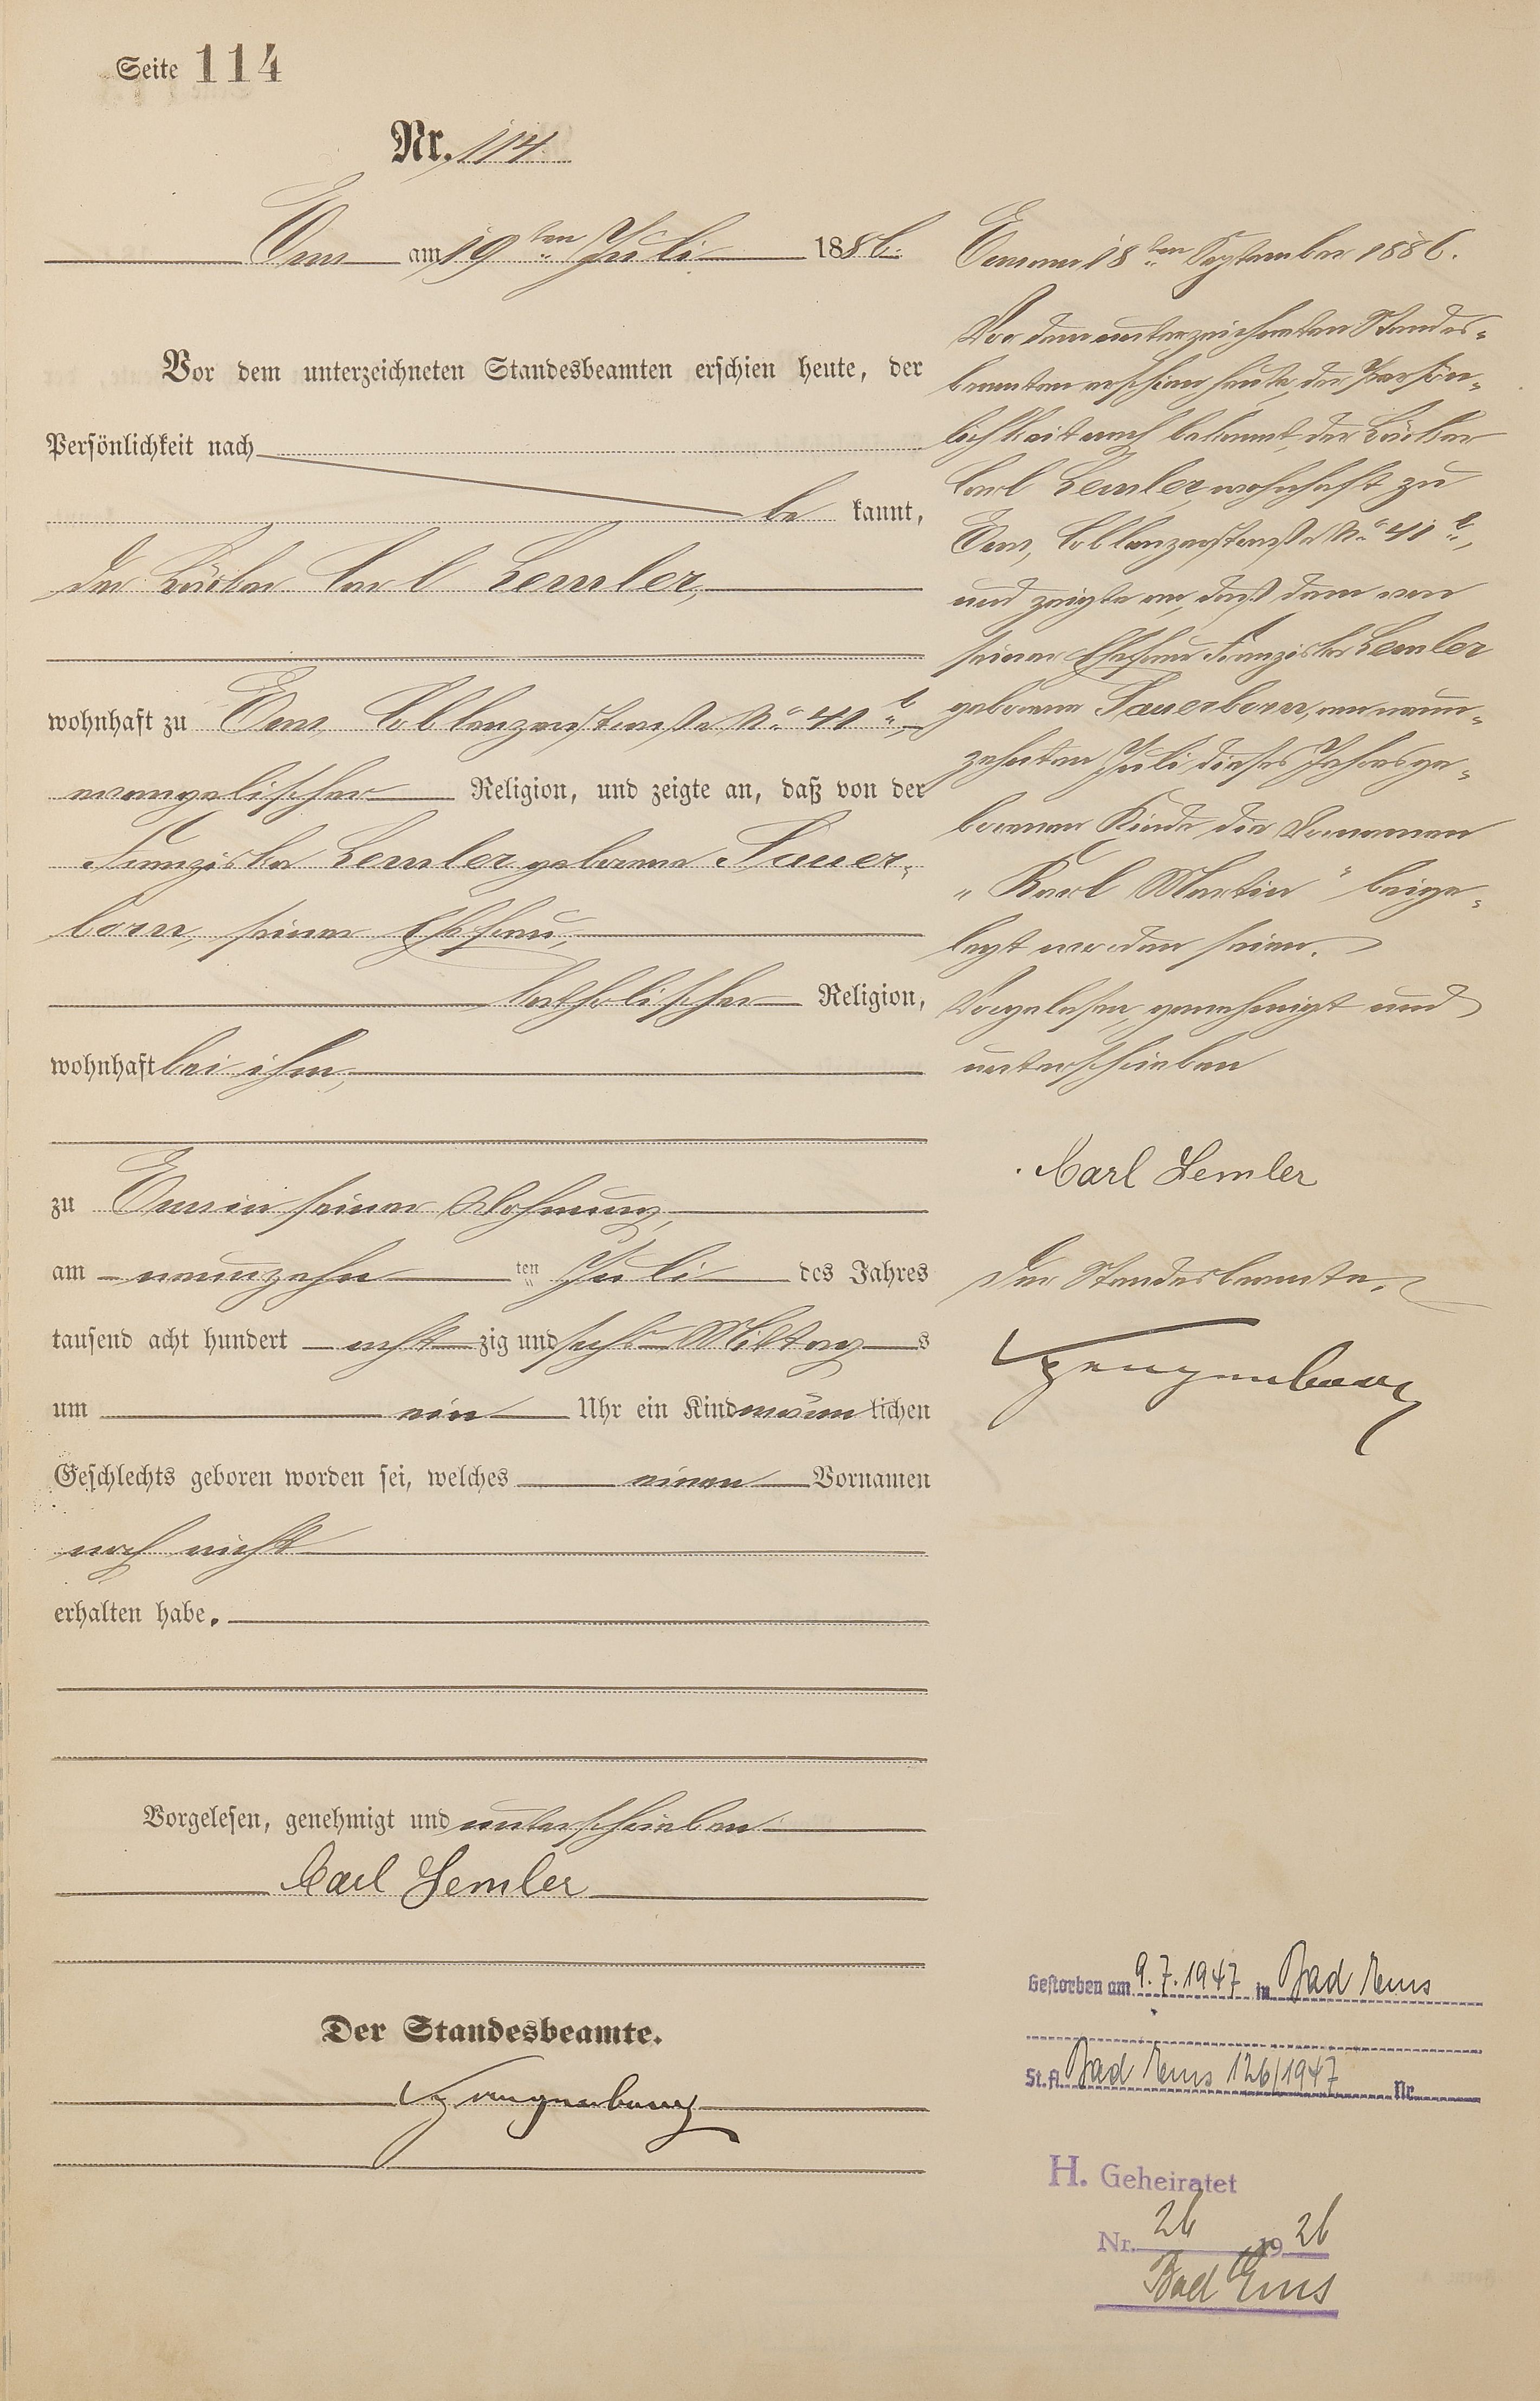 Seite 114
Nr. 114
Ems am 19ten Juli 1886.
Vor dem unterzeichneten Standesbeamten erschien heute, der
Persönlichkeit nach
be kannt,
der Bäcker Carl Lemler,
wohnhaft zu Ems, Coblenzerstraße No. 41 b,
evangelischer Religion, und zeigte an, daß von der
Franziska Lemler geborene Sauer-
born, seiner Ehefrau,
katholischer Religion,
wohnhaft bei ihm,
zu Ems in seiner Wohnung,
am neunzehn ten Juli des Jahres
tausend acht hundert acht zig und sechs Mittags
um ein Uhr ein Kind männ lichen
Geschlechts geboren worden sei, welches einen Vornamen
noch nicht
erhalten habe.
Vorgelesen, genehmigt und unterschrieben
Carl Lemler
Der Standesbeamte.
Ems am 18ten September 1886.
Vor dem unterzeichneten Standes-
beamten erschien heute, der Persön-
lichkeit nach bekannt, der Bäcker
Carl Lemler, wohnhaft zu
Ems, Coblenzerstraße No. 41 b,
und zeigte an, daß dem von
seiner Ehefrau Franziska Lemler
geborene Sauerborn, am neun-
zehnten Juli dieses Jahres ge-
borenen Kinde die Vornamen
"Karl Martin" beige-
legt worden seien.
Vorgelesen, genehmigt und
unterschrieben
Carl Lemler
Der Standesbeamte.
Gestorben am 9.7.1947 in Bad Ems
St.A. Bad Ems 126/1947 Nr.
H. Geheiratet
Nr. 26 1926
Bad Ems